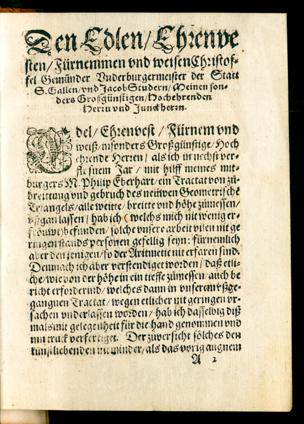 Den Edlen/Ehrenve
sten/Fürnemmen vnd weisen Christof-
fel Gemünder Vnderburgermeister der Statt
S. Gallen/vnd Jacob Studern/Meinen son-
ders Großgünstigen/Hochehrenden
Herrn vnd Junckherrn.
Edel/Ehrenvest/Fürnem vnd
weiß/insonders Großgünstige/Hoch
ehrende Herren/als ich in nechst ver-
flossnem Jar/mit hilff meines mit-
burgers M. Philip Eberhart/ein Tractat von zů-
breittung vnd gebruch des neüwen Geometrische
Triangels/alle weitte/breitte vnd höhe zůmessen/
vßgan lassen/hab ich (welchs mich nit wenig er-
fröuwt) befunden/solche vnsere arbeit vilen mit ge
ringen stands personen gefellig seyn: fürnemlich
aber den jenigen/so der Aritmetic nit erfaren sind.
Demnach ich aber verstendiget worden/daß etli-
che/wie von der höhe in ein tieffe zůmessen/auch be
richt erfordrind/welches dann in vnserem vßge-
gangnen Tractat/wegen etlicher nit geringen vr-
sachen vnderlassen worden/hab ich dasselwig diß
mals mit gelegenheit für die hand genommen vnd
inn truck verfertiget. Der zuversicht sölches den
kunstliebenden nit minder/als das vorig angnem
A 2